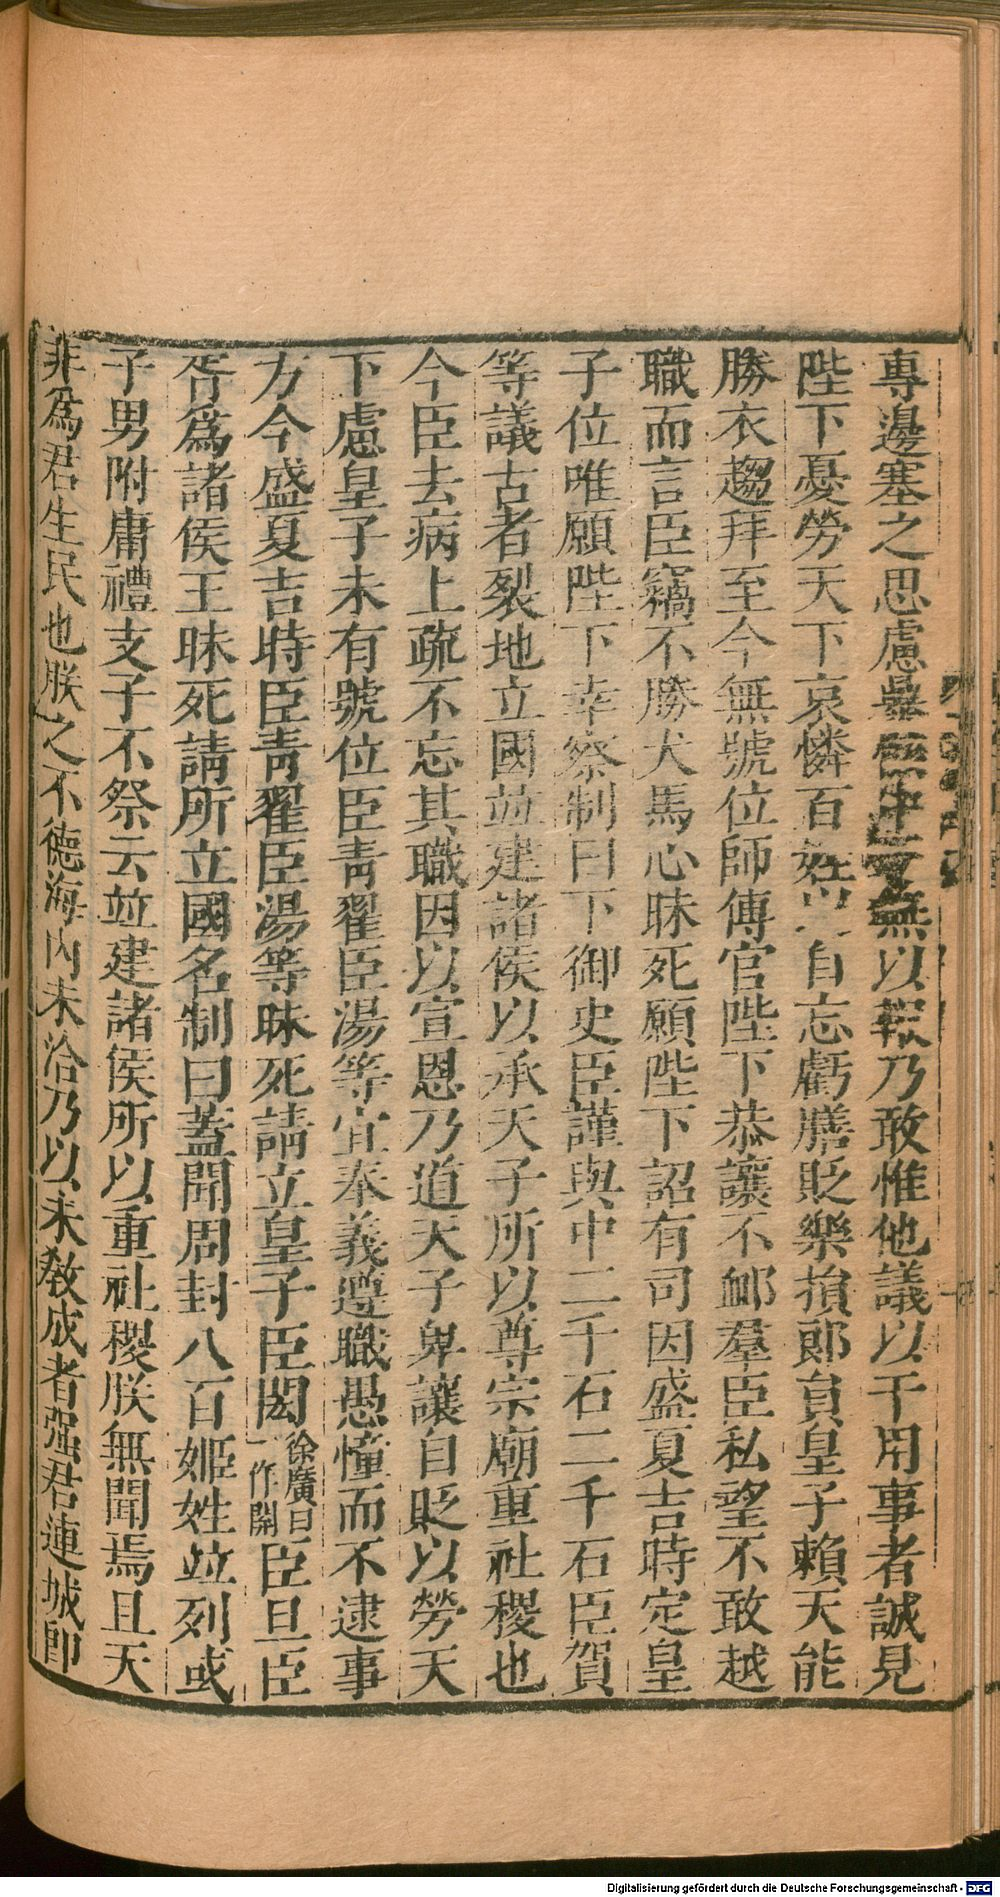 專邊塞之思慮暴骸中野無以報乃敢惟他議以干用事者誠見
陛下憂勞天下哀憐百姓以自忘虧膳貶樂損郎員皇子賴天能
勝衣趨拜至今無號位師傅官陛下恭讓不䘏羣臣私望不敢越
職而言臣竊不勝犬馬心昧死願陛下詔有司因盛夏吉時定皇
子位唯願陛下幸察制曰下御史臣謹與中二千石二千石臣賀
等議古者裂地立國並建諸侯以承天子所以尊宗廟重社稷也
今臣去病上疏不忘其職因以宣恩乃道天子卑讓自貶以勞天
下慮皇子未有號位臣青翟臣湯等宜奉義遵職愚憧而不逮事
方今盛夏吉時臣青翟臣湯等昧死請立皇子臣閎徐廣曰一作開臣旦臣
胥爲諸侯王昧死請所立國名制曰蓋聞周封八百姬姓並列或
子男附庸禮支子不祭云並建諸侯所以重社稷朕無聞焉且天
非爲君生民也朕之不德海內未洽乃以未敎成者强君連城卽
Digitalisierung gefördert durch die Deutsche Forschungsgemeinschaft - DFG